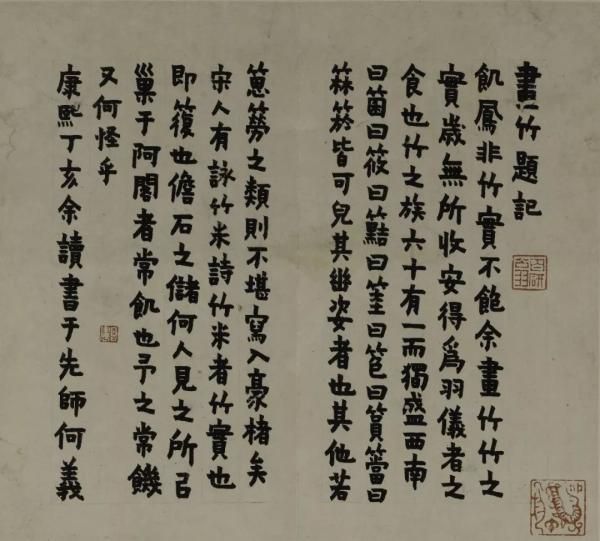 畫竹題記
飢鳳非竹實不飽余畫竹竹之
實歲無所收安得爲羽儀者之
食也竹之族六十有一而獨盛西南
曰箘曰筱曰曰筀曰笆曰篔簹曰
箖箊皆可兒其姿者也其他若
簩之類則不堪寫入豪楮矣
宋人有詠竹米詩竹米者竹實也
即也儋石之儲何人見之所㠯
巢于阿閣者常飢也予之常饑
又何怪乎
康熙丁亥余讀書于先師何義